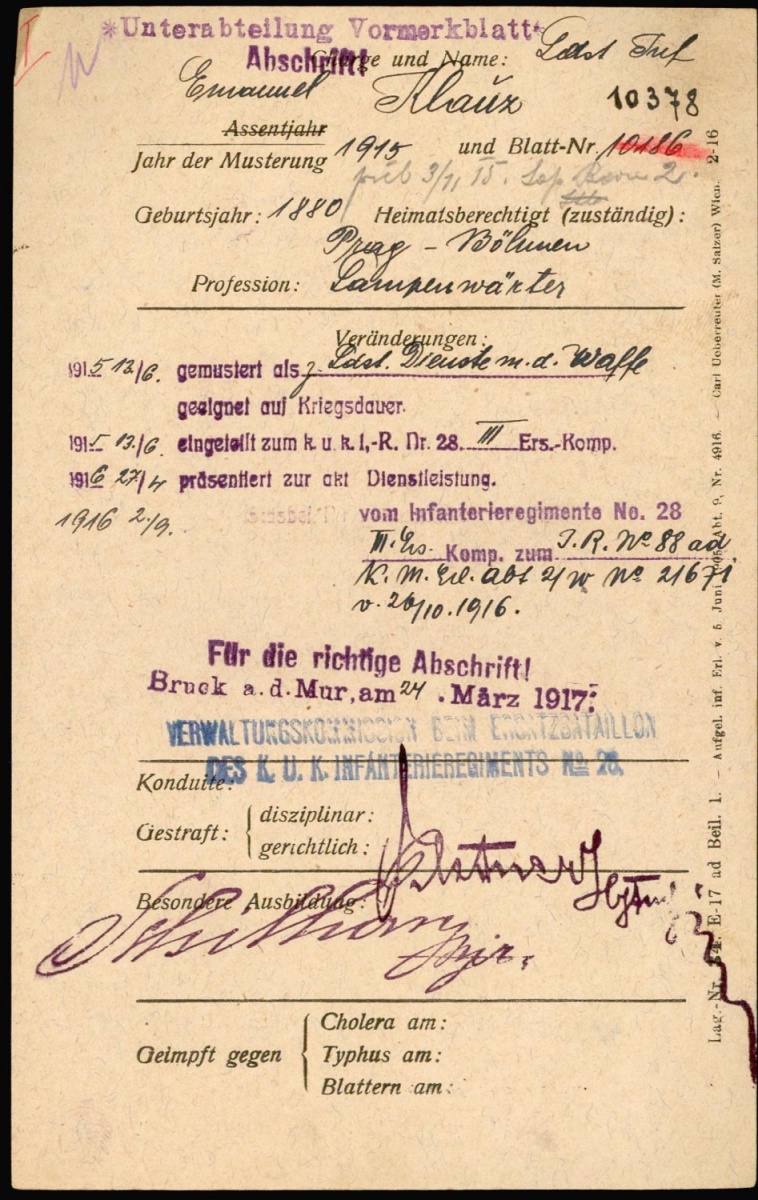 *Unterabteilung Vormerkblatt*
Abschrift!
Charge und Name: Ldst Inf
Emanuel Klauz 10378
Assentjahr
Jahr der Musterung 1915 und Blatt-Nr. 10186
Geburtsjahr: 1880 Heimatsberechtigt (zuständig):
Prag - Böhmen
Profession: Lampenwärter
Veränderungen:
1915 13/6. gemustert als z. Ldst. Dienste m. d. Waffe
geeignet auf Kriegsdauer.
1915 13/6. eingeteilt zum k. u. k. I.-R. Nr. 28. III Ers.-Komp.
1916 27/4 präsentiert zur akt Dienstleistung.
1916 2./9. vom Infanterieregimente No. 28
III. Ers. Komp. zum I. R. No 88 ad
K. M. Erl. abt 2/w No 21671
v. 26/10. 1916.
Für die richtige Abschrift!
Bruck a. d. Mur, am 24 . März 1917.
VERWALTUNGSKOMMISSION BEIM ERSATZBATAILLON
DES K. U. K. INFANTERIEREGIMENTS No 28.
Konduite:
Gestraft: disziplinar:
gerichtlich:
Besondere Ausbildung:
Geimpft gegen
Cholera am:
Typhus am:
Blattern am:
Lag.-Nr. E-17 ad Beil. 1. — Aufgel. inf. Erl. v. 5 Juni Abt. 9, Nr. 4916. — Carl Ueberreuter (M. Salzer) Wien. 2-16